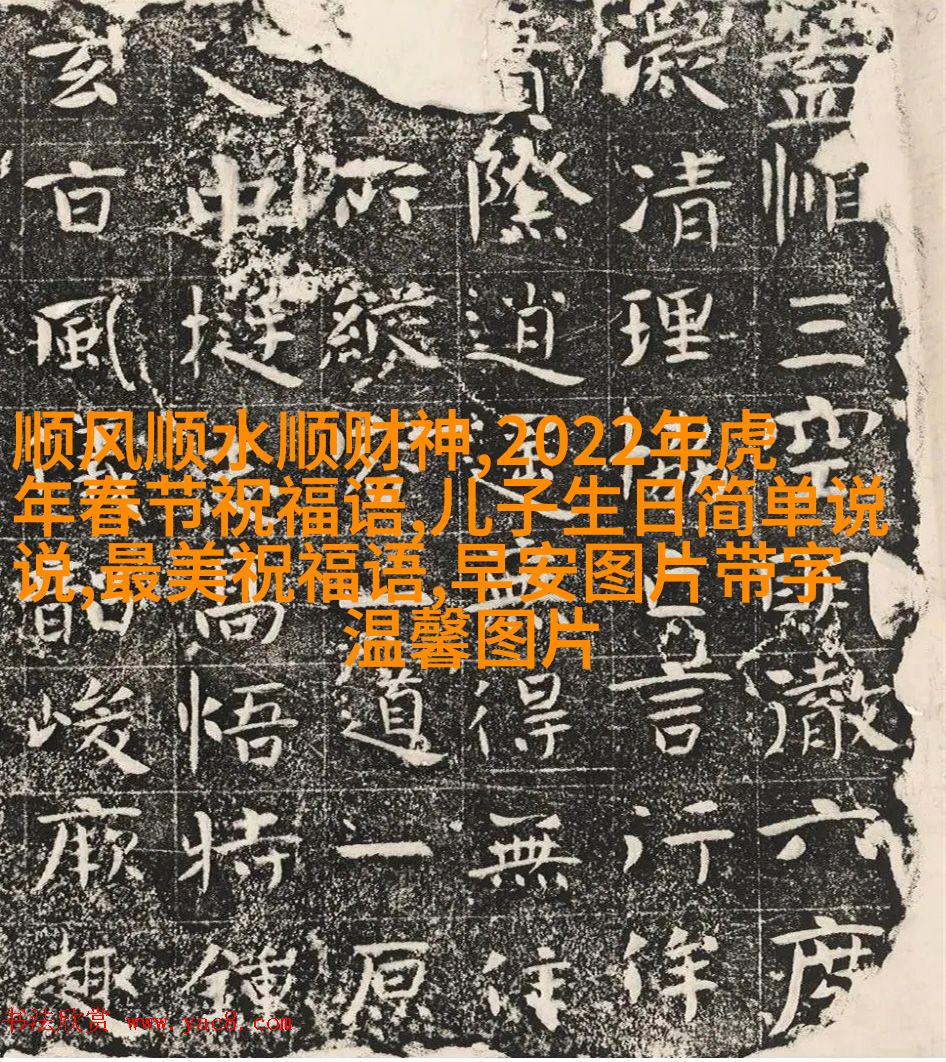 顺风顺水顺财神,2022年虎
年春节祝福语,儿子生日简单说
说,最美祝福语,早安图片带字
温馨图片
順三空澈六度
凝清理言行
際道得無住
所縱道一原
中挺尚悟特鍾
玄風韶峻厥趣
书法欣赏 www.yac8.com